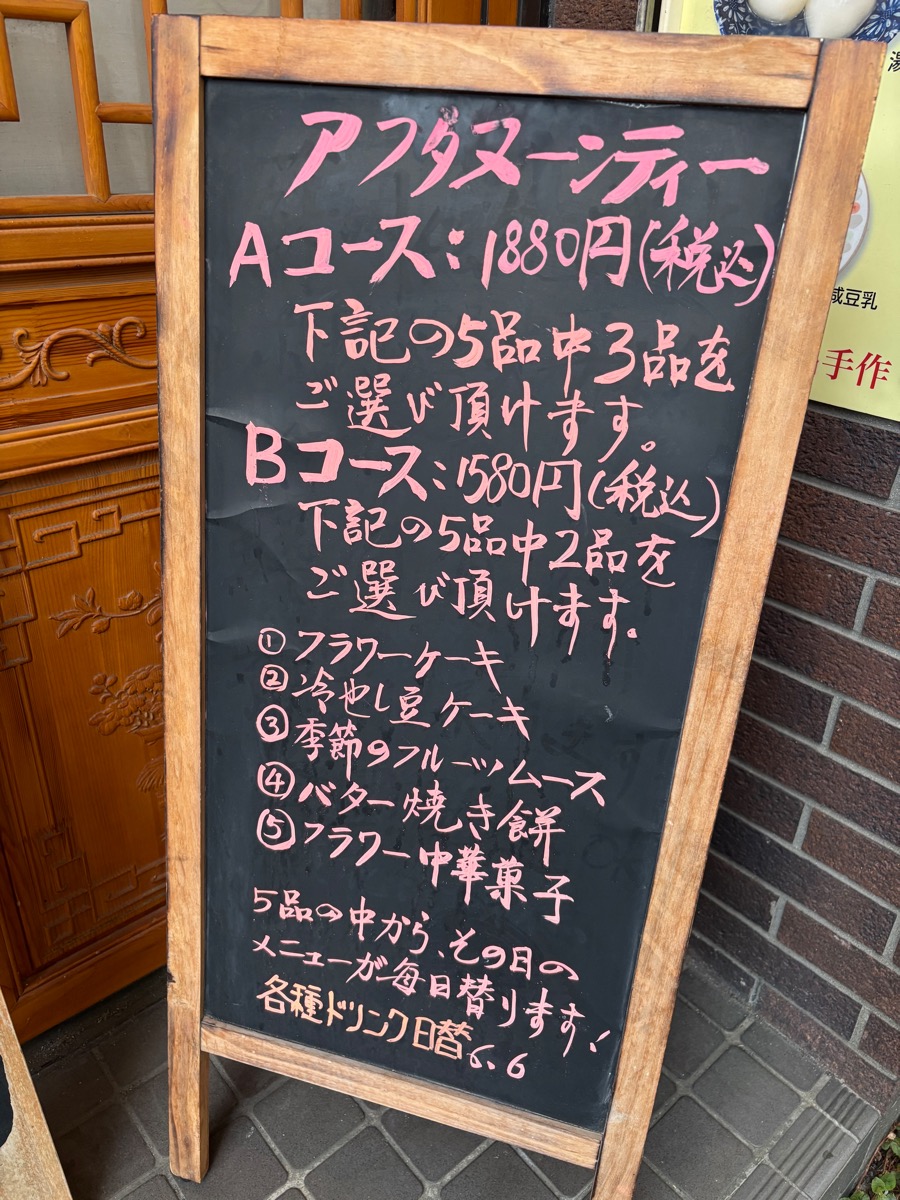 アフタヌーンティー
Aコース:1880円(税込)
下記の5品中3品を
ご選び頂けます。
Bコース:1580円(税込)
下記の5品中2品を
ご選び頂けます。
①フラワーケーキ
②冷やし豆ケーキ
③季節のフルーツムース
④バター焼き餅
⑤フラワー中華菓子
5品の中から、その日の
メニューが毎日替ります!
各種ドリンク日替
6.6
咸豆乳
手作